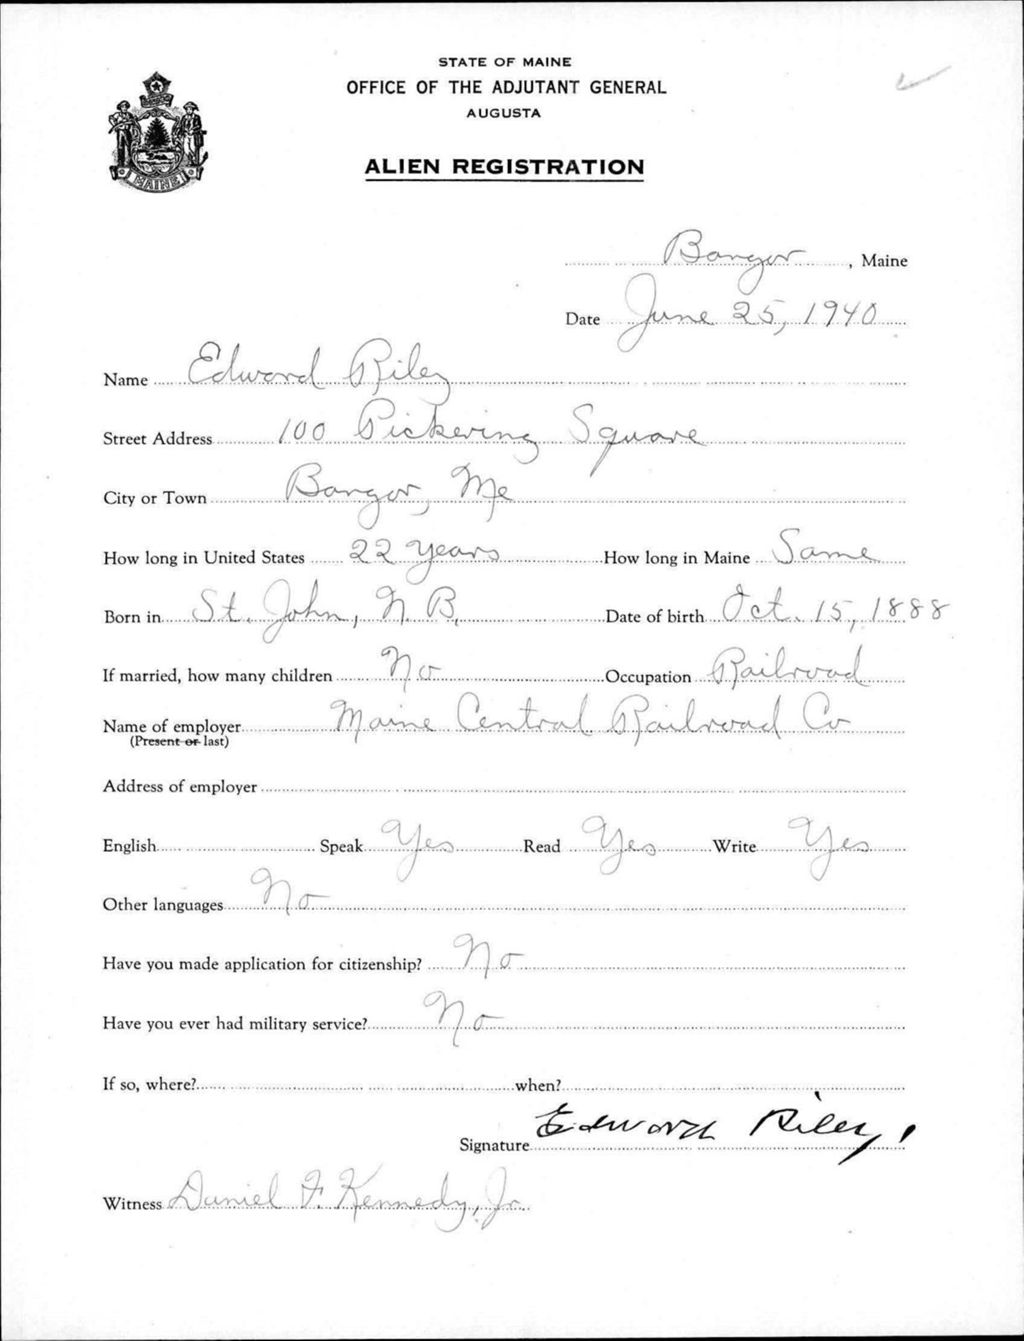 STATE OF MAINE
OFFICE OF THE ADJUTANT GENERAL
AUGUSTA
ALIEN REGISTRATION
MAINE
Bangor, Maine
Date June 25, 1940
Name Edward Riley
Street Address 100 Pickering Square
City or Town Bangor, Me
How long in United States 22 years How long in Maine Same
Born in St. John, N.B. Date of birth Oct. 15, 1888
If married, how many children No Occupation Railroad
Name of employer Maine Central Railroad Co
(Present or last)
Address of employer
English Speak Yes Read Yes Write Yes
Other languages No
Have you made application for citizenship? No
Have you ever had military service? No
If so, where? when?
Signature Edward Riley
Witness Daniel F. Kennedy, Jr.